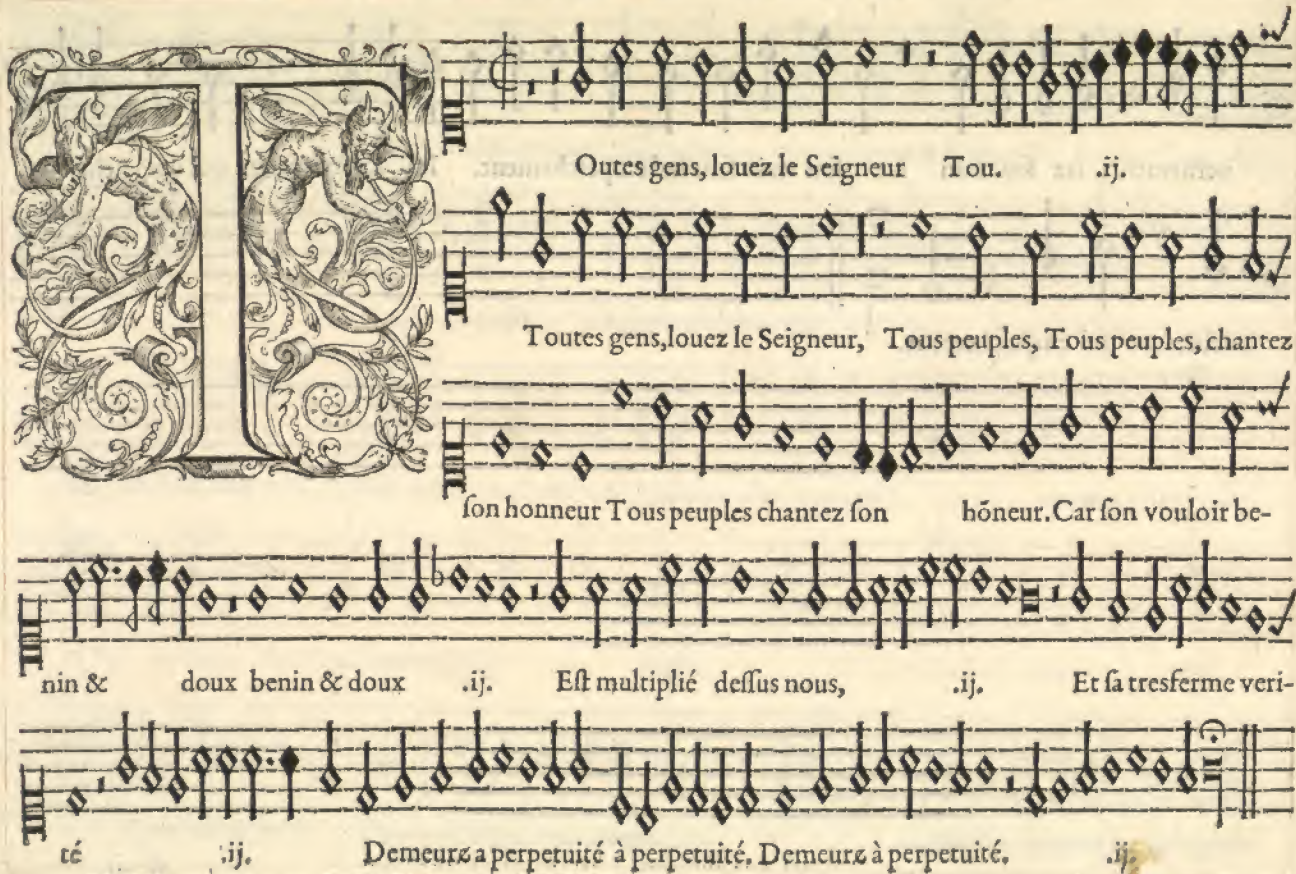 T
Outes gens, louez le Seigneur Tou. .ij.
Toutes gens,louez le Seigneur, Tous peuples, Tous peuples, chantez
ſon honneur Tous peuples chantez ſon hōneur. Car ſon vouloir be-
nin & doux benin & doux .ij. Eſt multiplié deſſus nous, .ij. Et ſa tresferme veri-
té .ij. Demeure a perpetuité à perpetuité. Demeure à perpetuité. .ij.